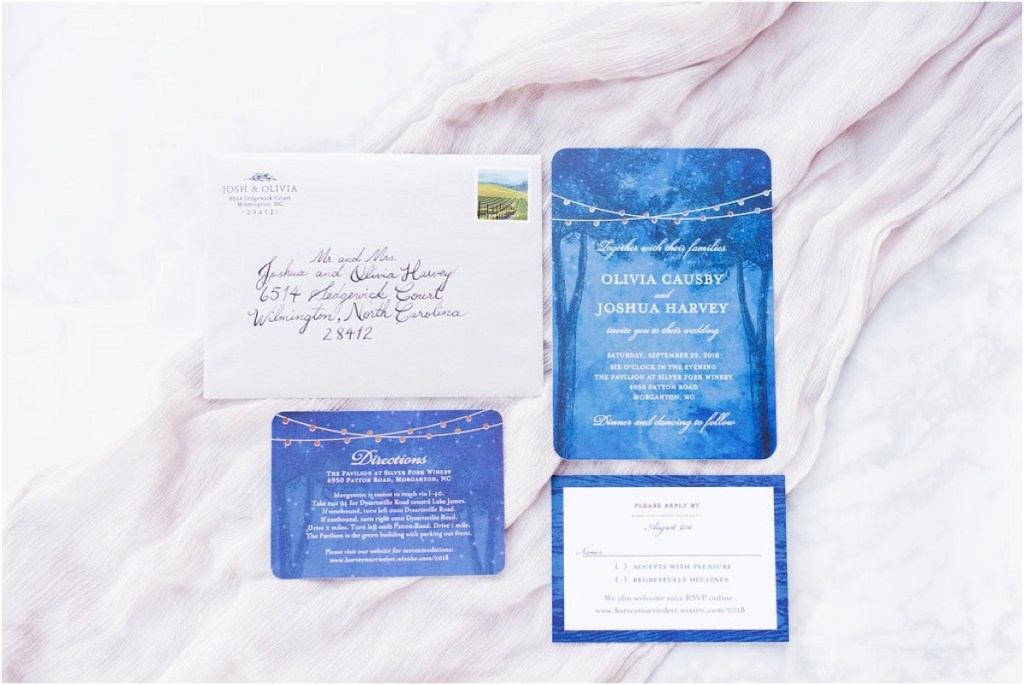 JOSH & OLIVIA
6514 Sedgewick Court
Wilmington, NC
· 28412 ·
Mr. and Mrs.
Joshua and Olivia Harvey
6514 Sedgewick Court
Wilmington, North Carolina
28412
Together with their families
OLIVIA CAUSBY
and
JOSHUA HARVEY
invite you to their wedding
SATURDAY, SEPTEMBER 22, 2018
SIX O'CLOCK IN THE EVENING
THE PAVILION AT SILVER FORK WINERY
4950 PATTON ROAD
MORGANTON, NC
Dinner and dancing to follow
Directions
THE PAVILION AT SILVER FORK WINERY
4950 PATTON ROAD, MORGANTON, NC
Morganton is easiest to reach via I-40.
Take exit 94 for Dysartsville Road toward Lake James.
If eastbound, turn left onto Dysartsville Road.
If westbound, turn right onto Dysartsville Road.
Drive 2 miles. Turn left onto Patton Road. Drive 1 mile.
The Pavilion is the green building with parking out front.
Please visit our website for accommodations:
www.harveymarriedyet.wixsite.com/2018
PLEASE REPLY BY
August 31st
Names
( ) ACCEPTS WITH PLEASURE
( ) REGRETFULLY DECLINES
We also welcome your RSVP online.
www.harveymarriedyet.wixsite.com/2018